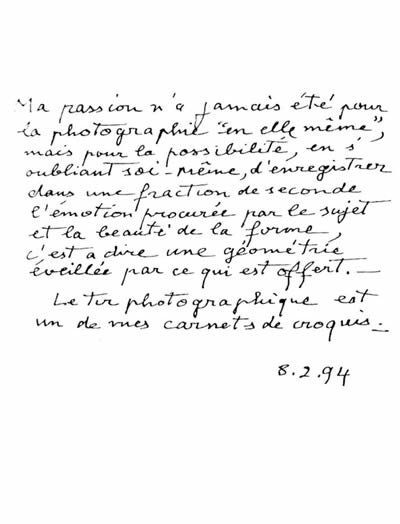 Ma passion n'a jamais été pour
la photographie "en elle même",
mais pour la possibilité, en s'
oubliant soi-même, d'enregistrer
dans une fraction de seconde
l'émotion procurée par le sujet
et la beauté de la forme,
c'est a dire une géométrie
éveillée par ce qui est offert. —
Le tir photographique est
un de mes carnets de croquis. -
8.2.94